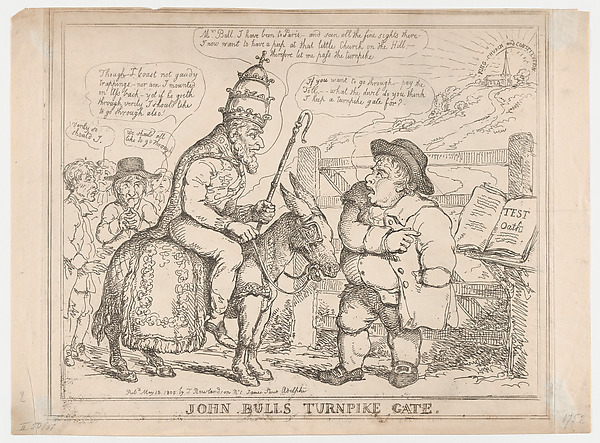 Mr. Bull. I have been to Paris – and seen all the fine sights there
I now want to have a peep at that little Church on the Hill –
therefore let me pass the turnpike
THE CHURCH AND CONSTITUTION
Though I boast not gaudy
trappings – nor am I mounted
on
yet – if he goeth
through verily I should like
to go through also.
If you want to go through – pay the
Toll – what the devil do you think
I keep a turnpike gate for?
Verily so
should I.
We should all
like to go through
TEST
Oath
Pubd. May 13. 1805 by T. Rowlandson No. 1 James Street Adelphi
JOHN BULLS TURNPIKE GATE.